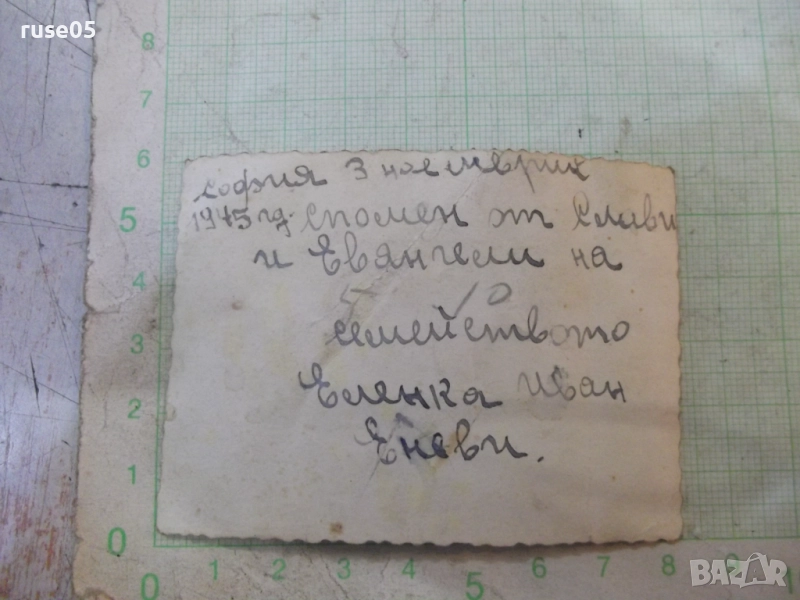 ruse05
8
7
6
5
4
3
2
1
0
0 1 2 3 4 5 6 7 8 9 1
София 3 ноемврий
1945 г спомен от Сливи
и Евянгели на
5 10
семейството
Еленка Иван
Еневи.
BAZAR